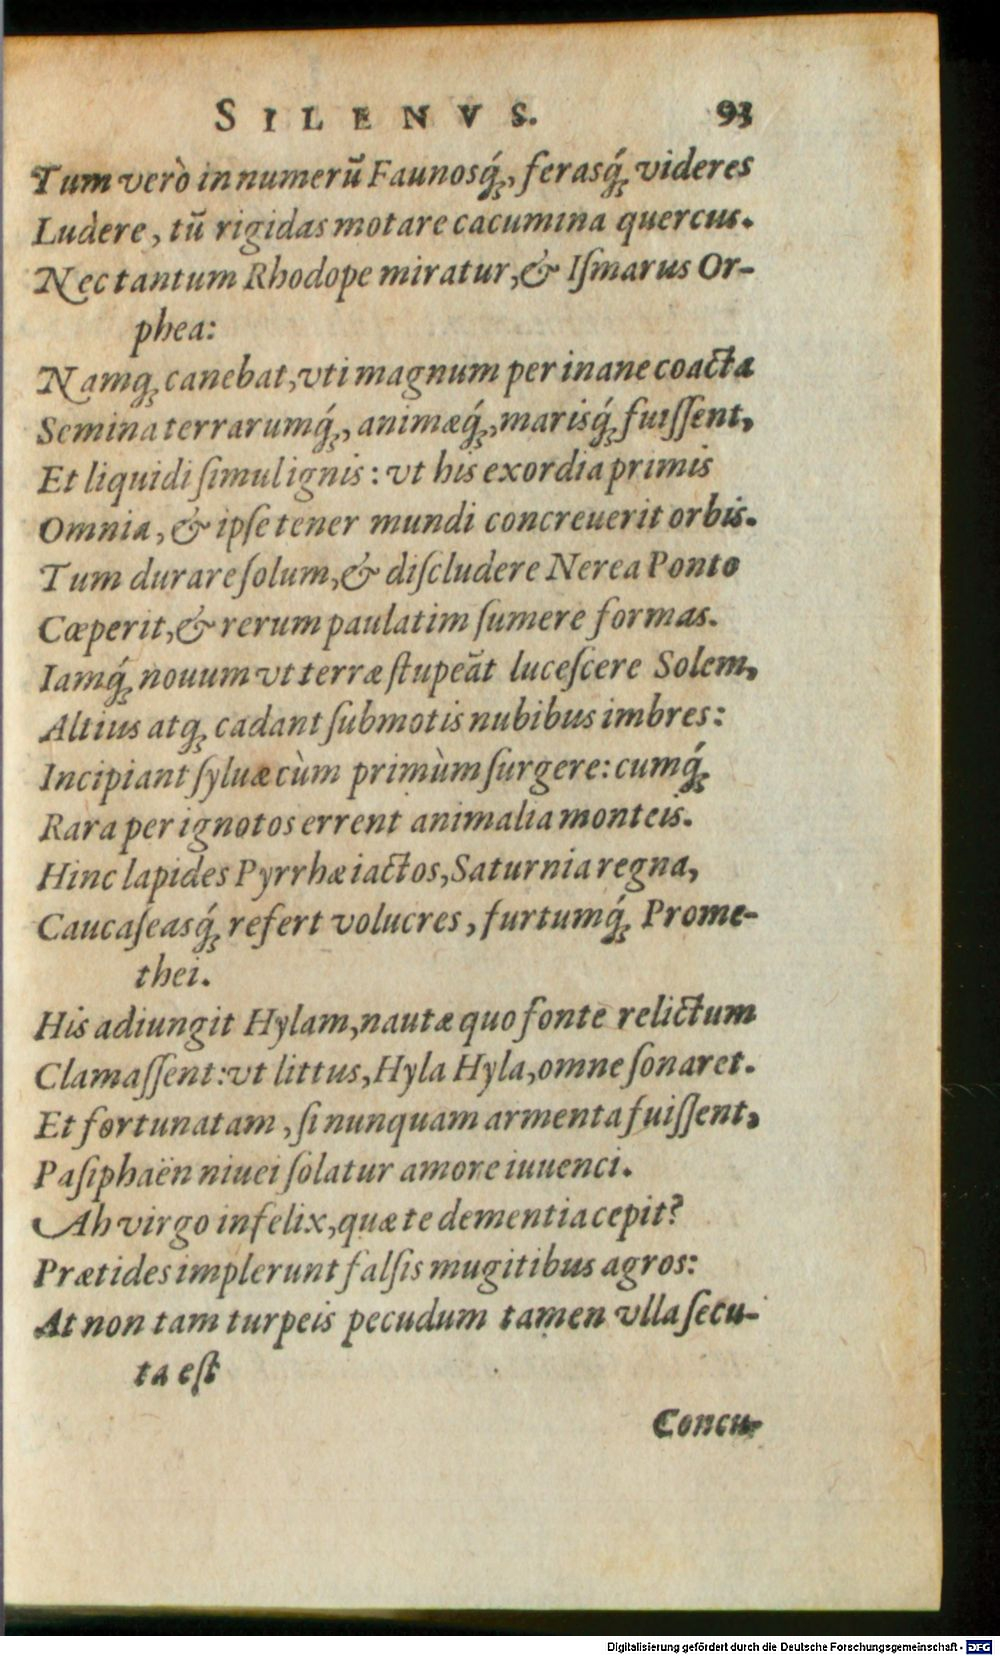 SILENVS. 93
Tum verò in numerũ Faunosq́;, ferasq́; videres
Ludere, tũ rigidas motare cacumina quercus.
Nec tantum Rhodope miratur, & Iſmarus Or-
phea:
Namq; canebat, vti magnum per inane coacta
Semina terrarumq́;, animæq́;, marisq́; fuiſſent,
Et liquidi ſimul ignis: vt his exordia primis
Omnia, & ipſe tener mundi concreuerit orbis.
Tum durare ſolum, & diſcludere Nerea Ponto
Cœperit, & rerum paulatim ſumere formas.
Iamq́; nouum vt terræ ſtupeãt luceſcere Solem,
Altius atq; cadant ſubmotis nubibus imbres:
Incipiant ſyluæ cùm primùm ſurgere: cumq́;
Rara per ignotos errent animalia monteis.
Hinc lapides Pyrrhæ iactos, Saturnia regna,
Caucaſeasq́; refert volucres, furtumq́; Prome-
thei.
His adiungit Hylam, nautæ quo fonte relictum
Clamaſſent: vt littus, Hyla Hyla, omne ſonaret.
Et fortunatam, ſi nunquam armenta fuiſſent,
Paſiphaën niuei ſolatur amore iuuenci.
Ah virgo infelix, quæ te dementia cepit?
Prætides implerunt falſis mugitibus agros:
At non tam turpeis pecudum tamen vlla ſecu-
ta eſt
Concu-
Digitalisierung gefördert durch die Deutsche Forschungsgemeinschaft - DFG